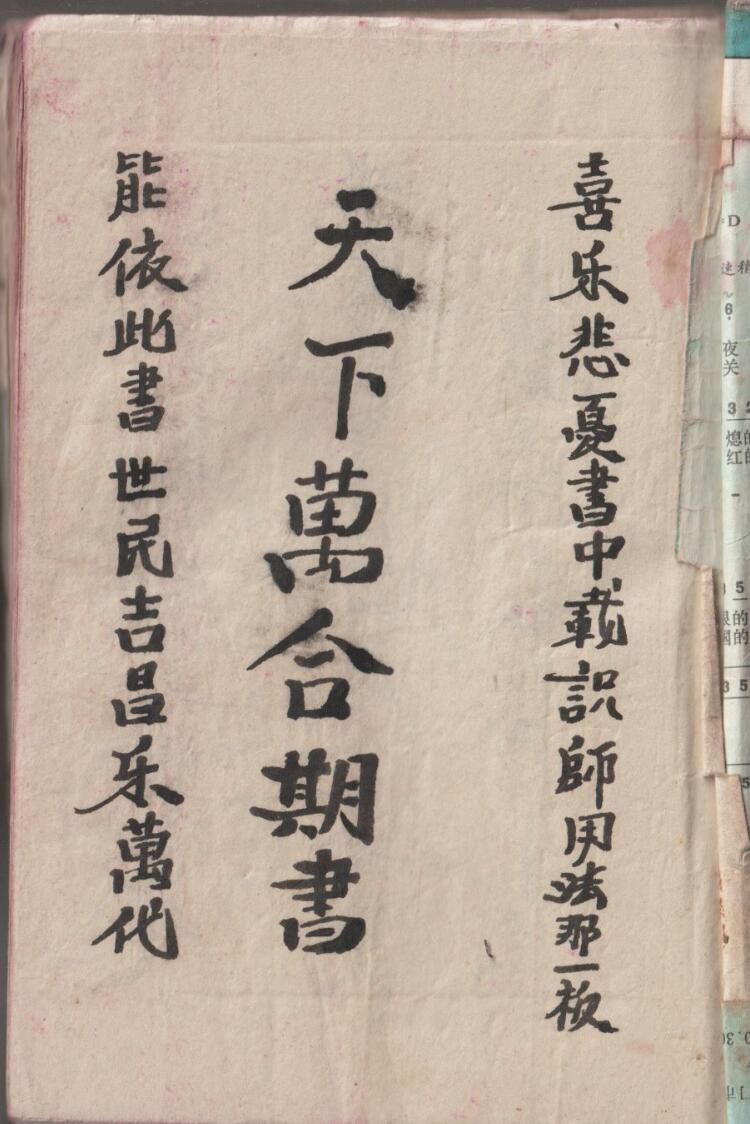 喜乐悲憂書中載説師用法那一板
天下萬合期書
能依此書世民吉昌乐萬代
夜关